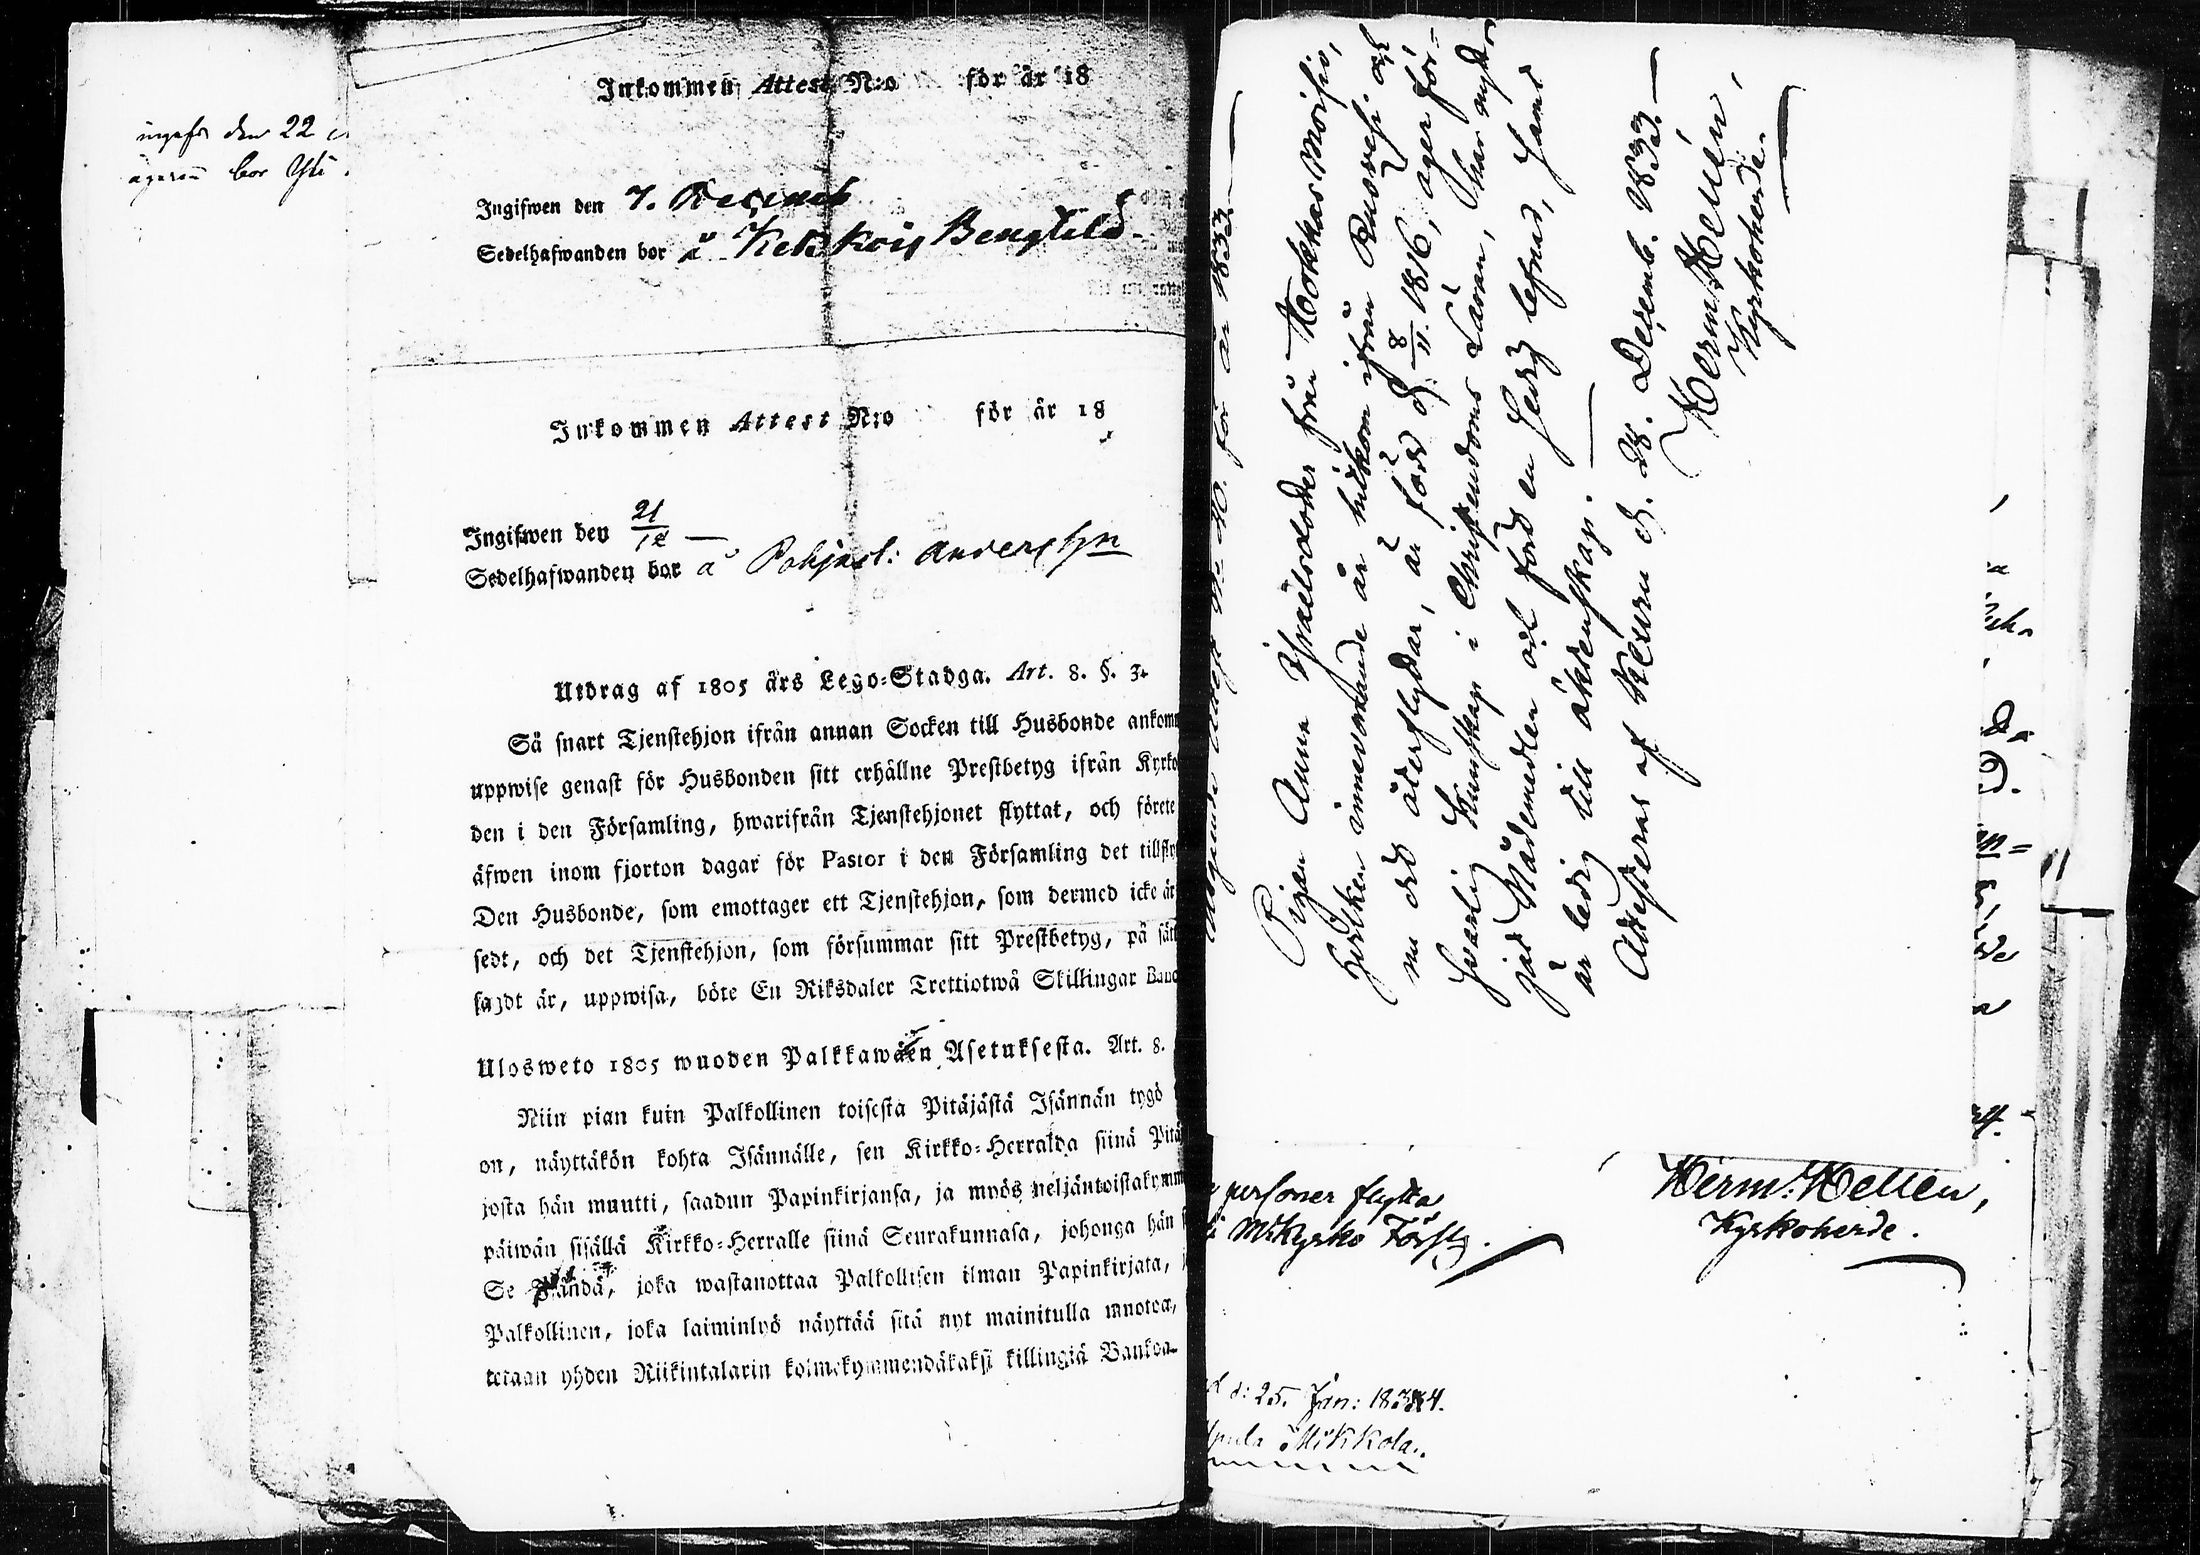 ingifs den 22
ägaren bor Yli
Inkommen Attest N:o för år 18
Ingifwen den 7. Decemb
Sedelhafwanden bor å Kekkois Bengtlld
Inkommen Attest N:o för år 18
Ingifwen den 21/12 —
Sedelhafwanden bor å Pohjacl: Andersby
Utdrag af 1805 års Lego=Stadga. Art. 8. §. 3.
Så snart Tjenstehjon ifrån annan Socken till Husbonde ankom
uppwise genast för Husbonden sitt erhållne Prestbetyg ifrån Kyrko
den i den Församling, hwarifrån Tjenstehjonet flyttat, och förete
äfwen inom fjorton dagar för Pastor i den Församling det tillfly
Den Husbonde, som emottager ett Tjenstehjon, som dermed icke är
sedt, och det Tjenstehjon, som försummar sitt Prestbetyg, på sätt
sagdt är, uppwisa, böte En Riksdaler Trettiotwå Skillingar Banco
Ulosweto 1805 wuoden Palkkawäen Asetuksesta. Art. 8.
Niin pian kuin Palkollinen toisesta Pitäjästä Isännän tygö
on, näyttäkön kohta Isännälle, sen Kirkko=Herralda siinä Pitä
josta hän muutti, saadun Papinkirjansa, ja myös neljäntoistakymm
päiwän sisällä Kirkko=Herralle siinä Seurakunnasa, johonga hän
Se Isändä, joka wastanottaa Palkollisen ilman Papinkirjata,
Palkollinen, joka laiminlyö näyttää sitä nyt mainitulla muotoa,
tetaan yhden Riikintalarin kolmekymmendäkaksi killingiä Bankoa
för år 1833 —
Pigan Anna Israelsdotter från Kokkas Moisio,
hvilken innevarande år hitkom ifrån Rusvesi och
nu dit återflyttar, är född d. 8/11 1816, äger för=
svarlig Kunskap i Christendoms Läran, har nytt=
jat Nådemedlen och fört en hedrig lefnad, samt
är ledig till äktenskap. —
Attesteras af Keuru d. 28. Decemb. 1833. —
Herm. Hellén,
Kyrkoherde.
personer flytta
Mikyrko Församlg.
Herm: Hellén,
Kyrkoherde.
d: 25. Jan: 1834.
Mikkola.